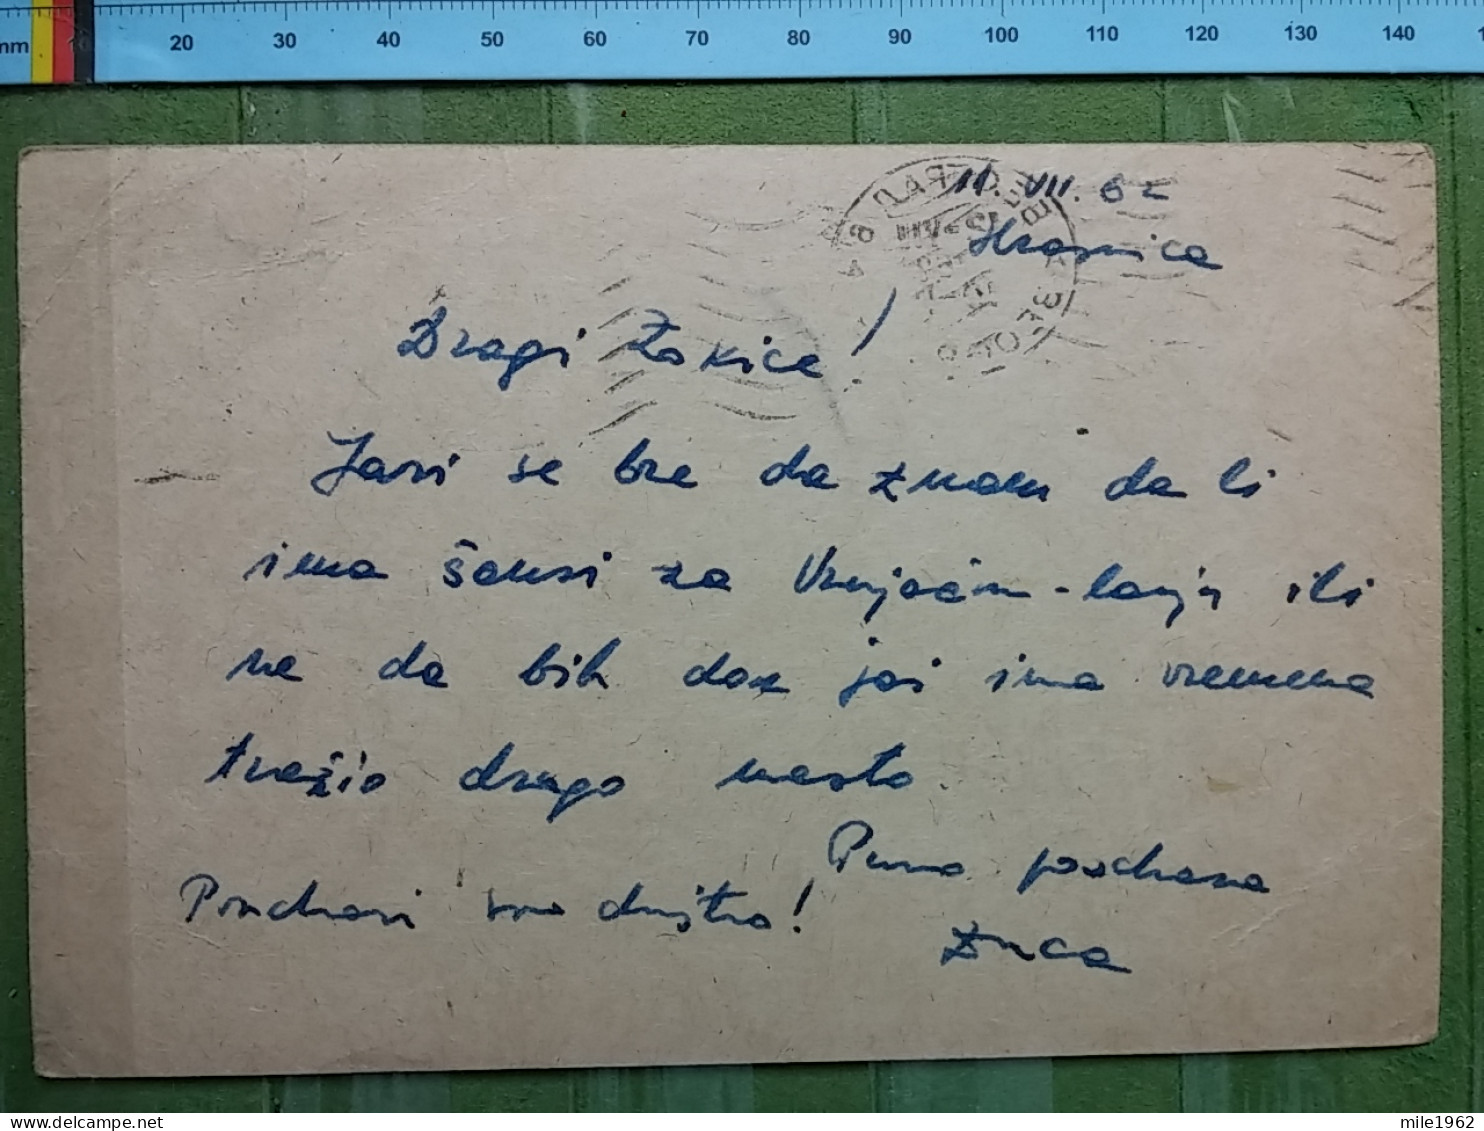 mm 20 30 40 50 60 70 80 90 100 110 120 130 140
11. VII. 62
Hrasnica
Dragi Žokice!
Javi se bre da znam da li
ima šansi za Vrnjačku-banju ili
ne da bih dok još ima vremena
tražio drugo mesto
Puno pozdrava
Pozdravi svo društvo!
mile1962